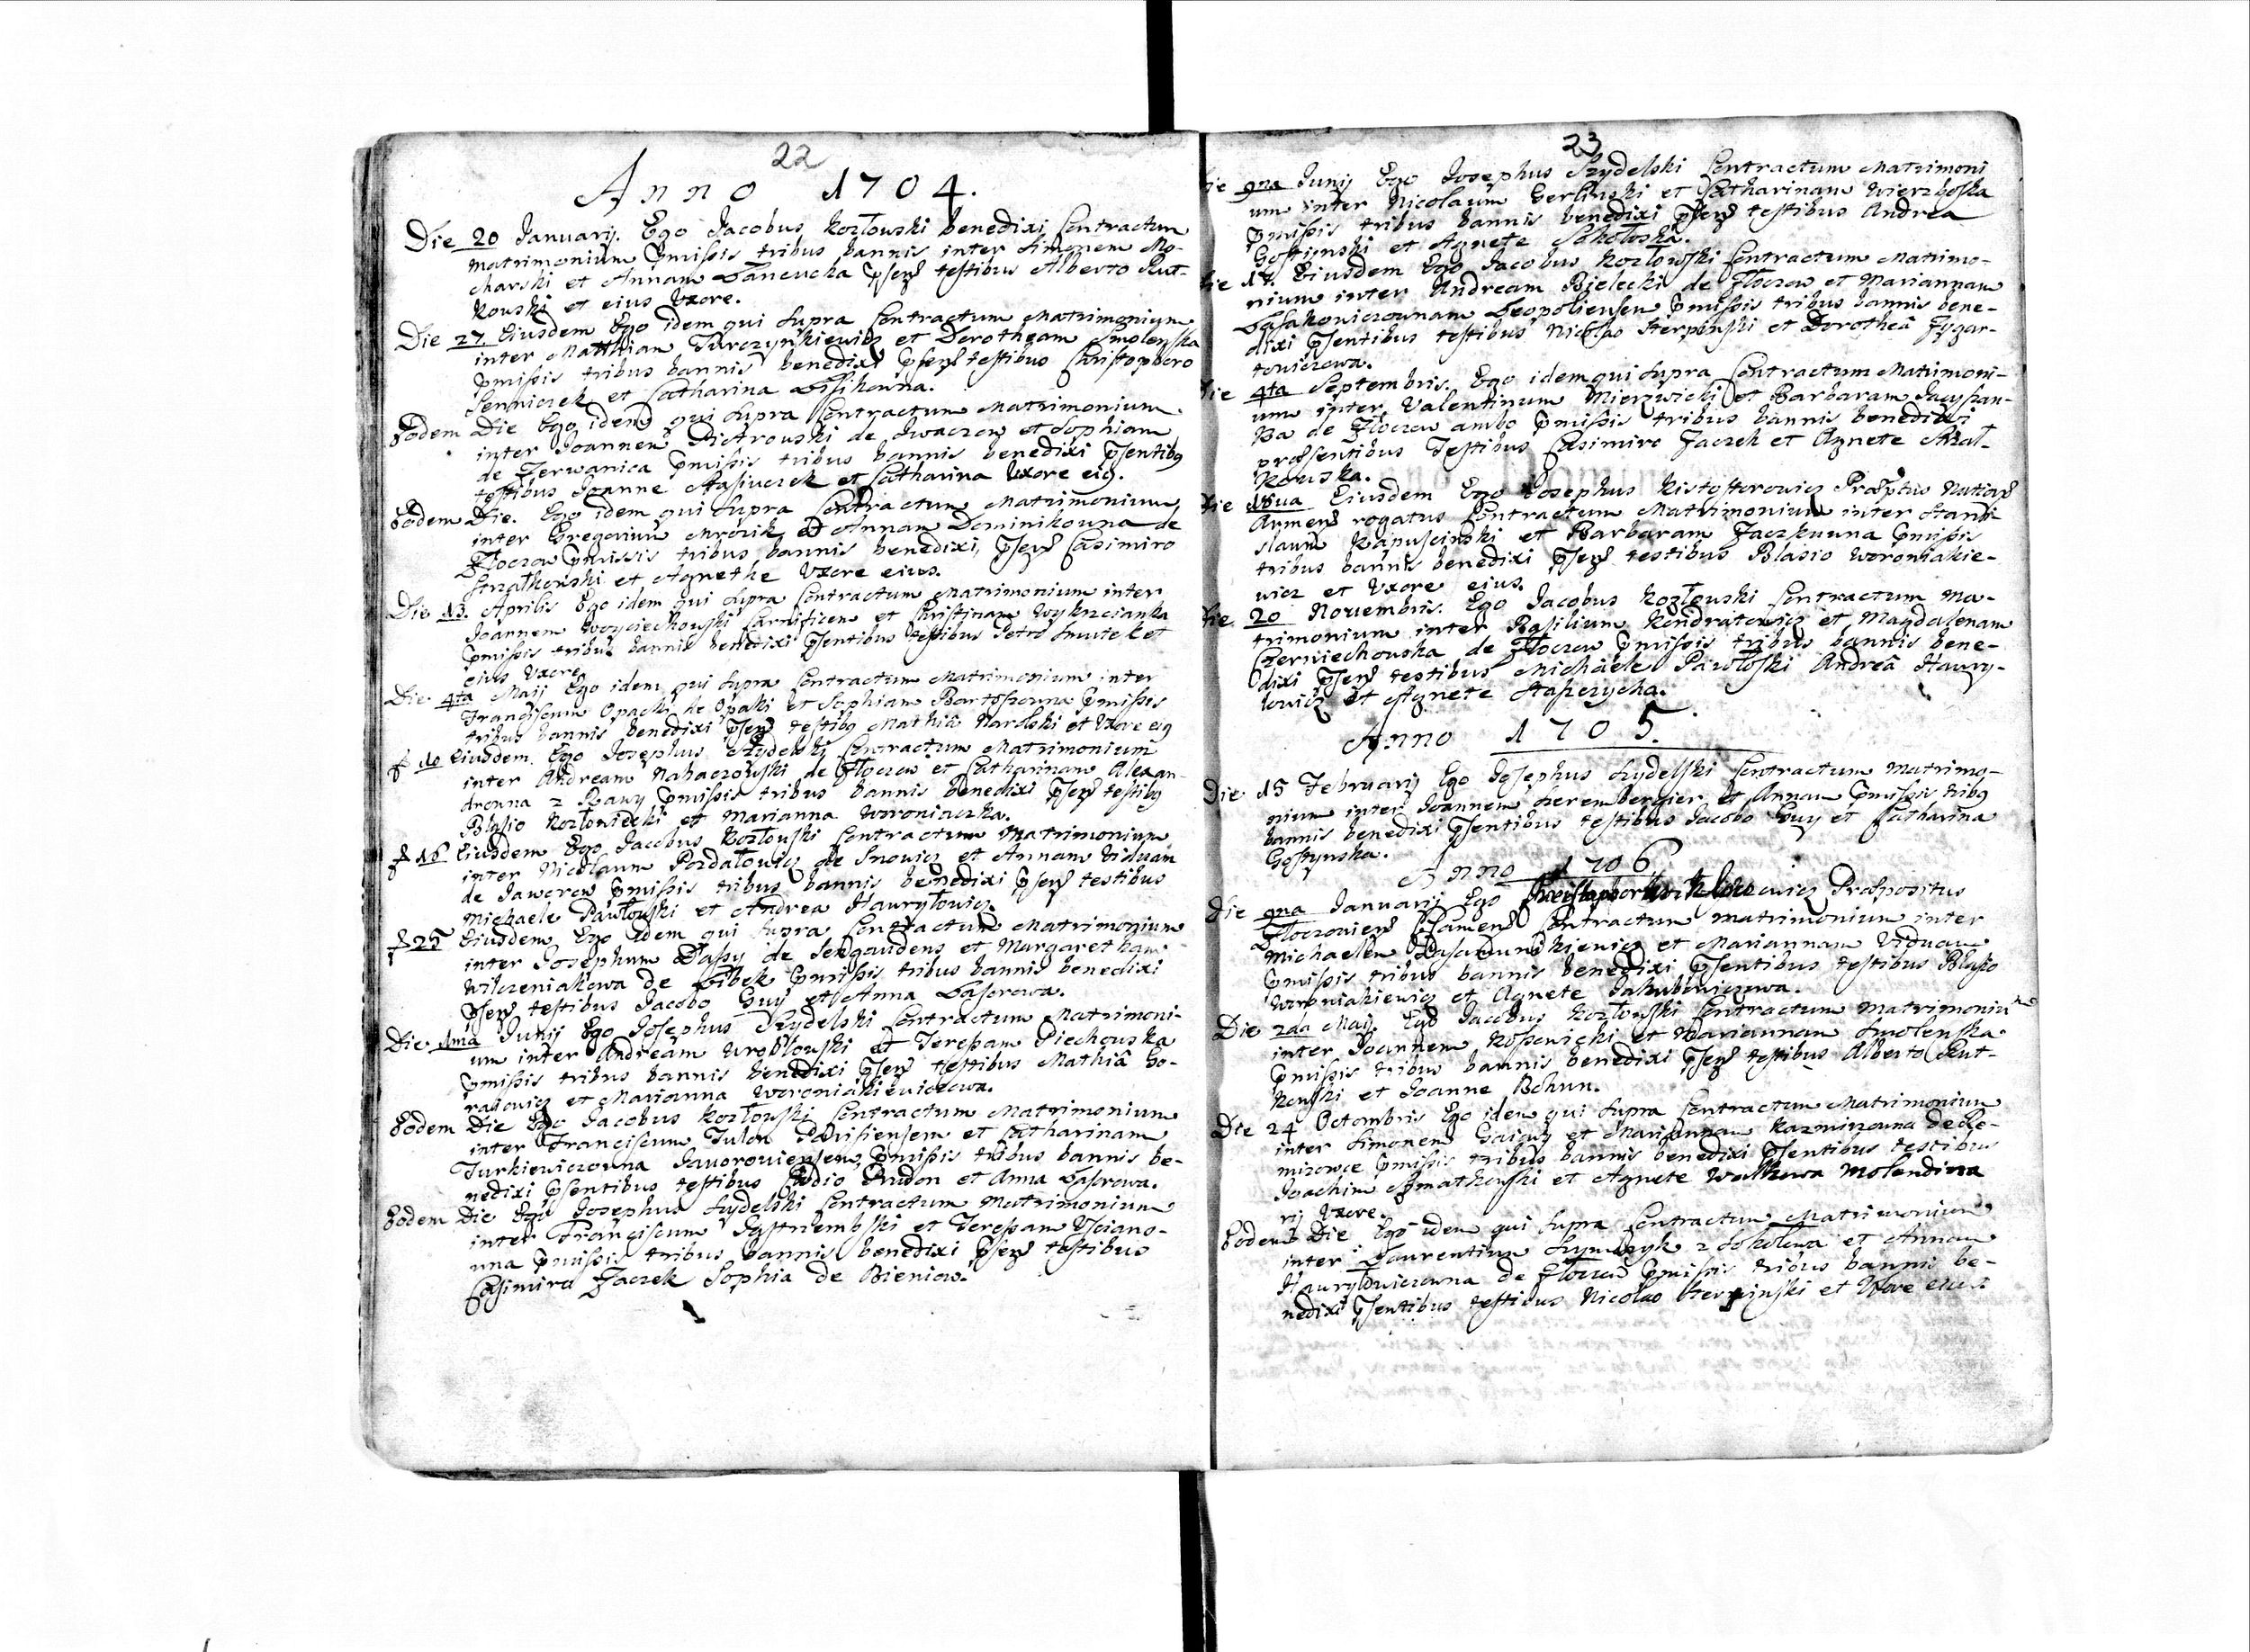 22
Anno 1704.
Die 20 Januarij. Ego Jacobus Kozłowski benedixi Contractum
matrimonium pmissis tribus bannis inter Simonem Mo-
charski et Annam Łancucka psend testibus Alberto Rut-
kowski et eius Uxore.
Die 27 Eiusdem Ego idem qui supra Contractum Matrimonium
inter Matthiam Turczynkiewicz et Dorotheam Smolenska
pmissis tribus bannis benedixi psend testibus Christophoro
et Catharina
Eodem Die Ego idem qui supra Contractum Matrimonium
inter Joannem Piotrouski de et Sophiam
de Zerwanica pmissis tribus bannis benedixi psentibg
testibus Joanne Stasiuczek et Catharina Uxore eig.
Eodem Die. Ego idem qui supra Contractum Matrimonium
inter Gregorium Mrozik et Annam Dominikouna de
Złoczow pmissis tribus bannis benedixi, psend Casimiro
Strzałkowski et Agnethe Uxore eius.
Die 13. Aprilis Ego idem qui supra Contractum Matrimonium inter
Joannem Woyciechowski Carnificem et Christinam
pmissis tribus bannis benedixi psentibus testibus Petro Smutek et
eius Uxore
Die 4ta Maij Ego idem qui supra Contractum Matrimonium inter
Franciscum Opacki de Opaki et Sophiam pmissis
tribus bannis benedixi psend testibg Mathia Narolski et Uxore eig
10 Eiusdem. Ego Josephus Szydelski Contractum Matrimonium
inter Andream de Złoczow et Catharinam Alexan-
drouna z pmissis tribus bannis benedixi psend testibg
Blasio et Marianna Woroniaczka.
18 Eiusdem Ego Jacobus Kozłouski Contractum Matrimonium
inter Nicolaum de et Annam Viduam
de Jaworow pmissis tribus bannis benedixi psend testibus
Michaele Pawłouski et Andrea Hauryłowicz
25 Eiusdem Ego idem qui supra Contractum Matrimonium
inter Josephum de et Margaretham
Wilczeniakowa de pmissis tribus bannis benedixi
psend testibus Jacobo Guy et Anna Lasorowa.
Die 1ma Junij Ego Josephus Szydelski Contractum Matrimoni-
um inter Andream Wrobłouski et Teresam Piechouska
pmissis tribus bannis benedixi psend testibus Mathiâ Go-
et Marianna Woroniakiewiczowa.
Eodem Die Ego Jacobus Kozłouski Contractum Matrimonium
inter Franciscum Parisiensem et Catharinam
Turkiewiczouna Jauorouiensem pmissis tribus bannis be-
nedixi psentibus testibus et Anna Lasorowa.
Eodem Die Ego Josephus Szydelski Contractum Matrimonium
inter Franciscum et Teresam
una pmissis tribus bannis benedixi psend testibus
Casimiro Zaczek Sophia de Bieniow.
23
Die 9na Junij Ego Josephus Szydelski Contractum Matrimoni
um inter Nicolaum et Catharinam Wierzboska
pmissis tribus bannis benedixi psend testibus Andrea
Gostinski et Agnete Sokołoska.
Die 17. Eiusdem Ego Jacobus Kozłowski Contractum Matrimo-
nium inter Andream Bielecki de Złoczow et Mariannam
Leopoliensem pmissis tribus bannis bene-
dixi psentibus testibus Nicolao Sterpinski et Dorotheâ Zygar-
towiczowa.
Die 4ta Septembris. Ego idem qui supra Contractum Matrimoni-
um inter Valentinum Mierzwicki et Barbaram
ka de Złoczow ambo pmissis tribus bannis benedixi
præsentibus Testibus Casimiro Zaczek et Agnete Strzał-
kouska.
Die 18ua Eiusdem Ego Josephus Præptus
Armend rogatus Contractum Matrimonium inter Stani
slaum Kapuscinski et Barbaram Zaczkuuna pmissis
tribus bannis benedixi psend testibus Blasio Woroniakie-
wicz et Uxore eius.
Die 20 Nouembris. Ego Jacobus Kozłouski Contractum Ma-
trimonium inter Basilium Kondratowicz et Magdalenam
Czerniechouska de Złoczow pmissis tribus bannis bene-
dixi psend testibus Michaele Pawłoski Andreâ Haury-
lowicz et Agnete
Anno 1705.
Die 15 Februarij Ego Josephus Szydelski Contractum matrimo-
nium inter Joannem et Annam pmissis tribg
bannis benedixi psentibus testibus Jacobo Guy et Catharina
Gostynska.
Anno 1706
Die 9na Januarij Ego Præpositus
Contractum matrimonium inter
Michaelem et Mariannam Viduam
pmissis tribus bannis benedixi psentibus testibus Blasio
Woroniakiewicz et Agnete Jakubowiczowa.
Die 2da Maij. Ego Jacobus Kozłouski Contractum Matrimoniu
inter Joannem et Mariannam Smolenska.
pmissis tribus bannis benedixi psend testibus Alberto Rut-
kouski et Joanne Bohun.
Die 24 Octombris Ego idem qui supra Contractum Matrimonium
inter Simonem et Mariannam
pmissis tribus bannis benedixi psentibus testibus
Joachim et Agnete Molendina
rij Uxore.
Eodem Die Ego idem qui supra Contractum Matrimonium
inter Laurentium z et Annam
Hauryłowiczouna de Złoczow pmissis tribus bannis be-
nedixi psentibus testibus Nicolao Sterpinski et Uxore eius.